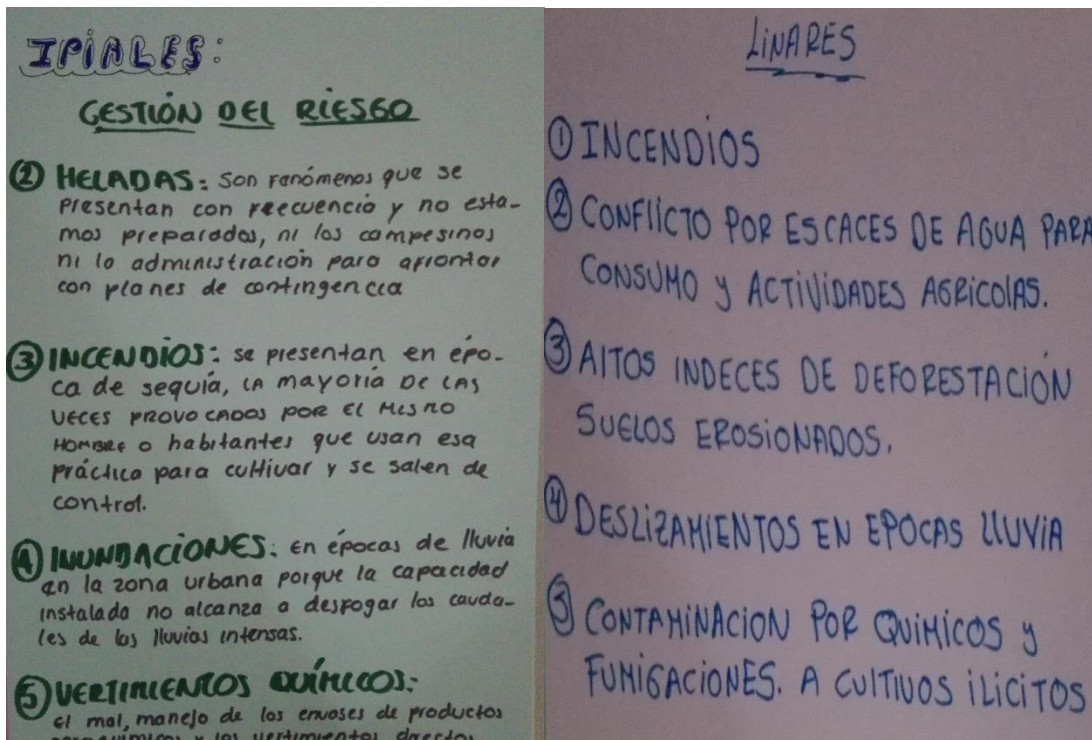 IPIALES:
GESTIÓN DEL RIESGO
② HELADAS: Son Fenómenos que se
presentan con frecuencia y no esta-
mos preparados, ni los campesinos
ni la administración para afrontar
con planes de contingencia
③ INCENDIOS: se presentan en épo-
ca de sequía, LA mayoría DE LAS
VECES PROVOCADOS POR EL MISMO
HOMBRE o habitantes que usan esa
práctica para cultivar y se salen de
control.
④ INUNDACIONES: En épocas de lluvia
en la zona urbana porque la capacidad
instalada no alcanza a desfogar los cauda-
les de las lluvias intensas.
⑤ VERTIMIENTOS QUÍMICOS:
el mal, manejo de los envases de productos
agroquímicos y los vertimientos directos
LINARES
① INCENDIOS
② CONFLICTO POR ESCACES DE AGUA PARA
CONSUMO y ACTIVIDADES AGRICOLAS.
③ ALTOS INDECES DE DEFORESTACIÓN
SUELOS EROSIONADOS.
④ DESLIZAMIENTOS EN EPOCAS LLUVIA
⑤ CONTAMINACION POR QUIMICOS y
FUMIGACIONES. A CULTIVOS ILICITOS